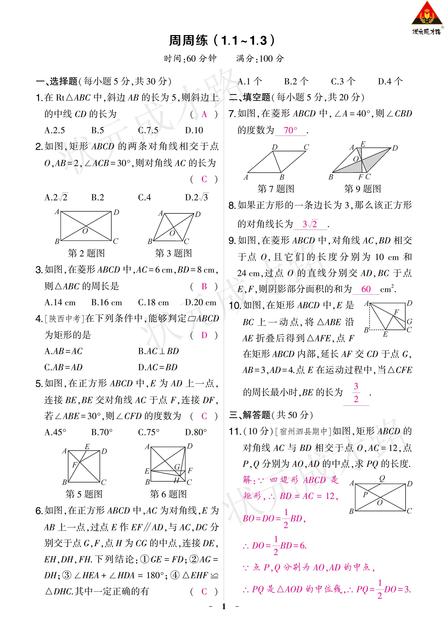 状元成才路
周周练（1.1~1.3）
时间:60分钟 满分:100分
一、选择题(每小题5分,共30分)
1.在Rt△ABC中,斜边AB的长为5,则斜边上
的中线CD的长为 ( A )
A.2.5 B.5 C.7.5 D.10
2.如图,矩形ABCD的两条对角线相交于点
O,AB=2,∠ACB=30°,则对角线AC的长为
( C )
A.2√2 B.2 C.4 D.2√3
A D
O
B C
第2题图
A D
O
B C
第3题图
3.如图,在菱形ABCD中,AC=6 cm,BD=8 cm,
则△ABC的周长是 ( B )
A.14 cm B.16 cm C.18 cm D.20 cm
4.[陕西中考]在下列条件中,能够判定▱ABCD
为矩形的是 ( D )
A.AB=AC B.AC⊥BD
C.AB=AD D.AC=BD
5.如图,在正方形ABCD中,E为AD上一点,
连接BE,BE交对角线AC于点F,连接DF,
若∠ABE=30°,则∠CFD的度数为 ( C )
A.45° B.70° C.75° D.80°
A E D
F
B C
第5题图
A D
E G F
H
B C
第6题图
6.如图,在正方形ABCD中,AC为对角线,E为
AB上一点,过点E作EF∥AD,与AC,DC分
别交于点G,F,点H为CG的中点,连接DE,
EH,DH,FH.下列结论:①GE=FD;②AG=
DH;③∠HEA+∠HDA=180°;④△EHF≌
△DHC.其中一定正确的有 ( C )
A.1个 B.2个 C.3个 D.4个
二、填空题(每小题5分,共20分)
7.如图,在菱形ABCD中,∠A=40°,则∠CBD
的度数为 70° .
D C
A B
第7题图
A E D
O
B F C
第9题图
8.如果正方形的一条边长为3,那么该正方形
的对角线长为 3√2 .
9.如图,在菱形ABCD中,对角线AC,BD相交
于点O,且它们的长度分别为10 cm和
24 cm,过点O的直线分别交AD,BC于点
E,F,则阴影部分面积的和为 60 cm².
10.如图,在矩形ABCD中,E是
BC上一动点,将△ABE沿
AE折叠后得到△AFE,点F
在矩形ABCD内部,延长AF交CD于点G,
AB=3,AD=4.点E在运动过程中,当△CFE
的周长最小时,BE的长为 3/2 .
A D
F G
B E C
三、解答题(共50分)
11.(10分)[宿州泗县期中]如图,矩形ABCD的
对角线AC与BD相交于点O,AC=12,点
P,Q分别为AO,AD的中点,求PQ的长度.
解:∵四边形ABCD是
矩形,∴BD=AC=12,
BO=DO=1/2BD,
∴DO=1/2BD=6.
∵点P,Q分别为AO,AD的中点,
∴PQ是△AOD的中位线,∴PQ=1/2DO=3.
A Q D
P
O
B C
1